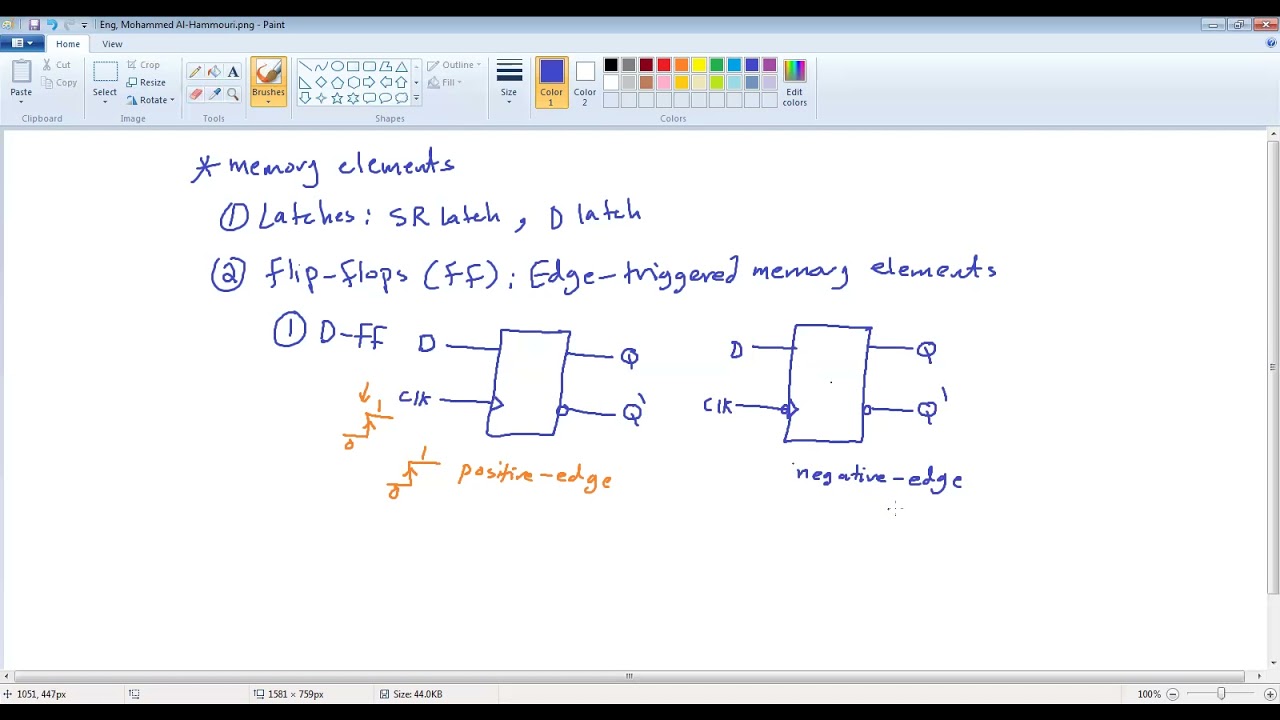 Eng, Mohammed Al-Hammouri.png - Paint
Home View
Paste Cut Copy Clipboard
Select Crop Resize Rotate Image
Tools
Brushes
Shapes Outline Fill
Size
Color 1 Color 2 Edit colors Colors
* memory elements
① Latches: SR latch, D latch
② flip-flops (FF): Edge-triggered memory elements
① D-FF D Q D Q
Clk Q' Clk Q'
1
0
1 positive-edge negative-edge
0
1051, 447px 1581 × 759px Size: 44.0KB 100%